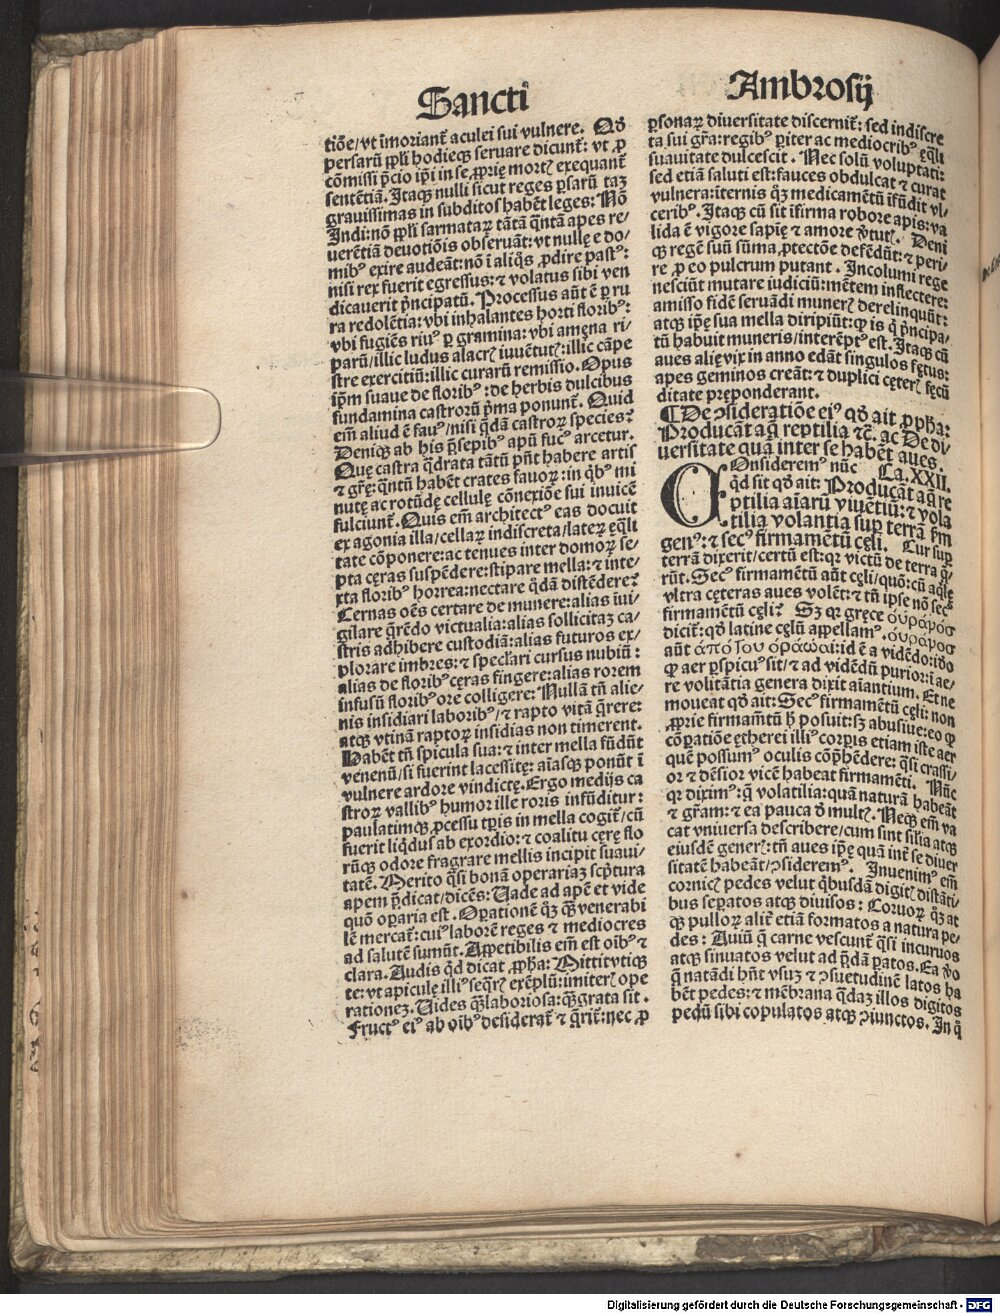 Sancti
Ambrosij
tiōe/vt īmoriant̄ aculei sui vulnere. Qd̄
persarū ppl̄i hodieqꝫ seruare dicunt̄: vt ꝓ
cōmissi p̄cio ip̄i in se ꝓprię mortꝭ exequant̄
sentētiā. Itaqꝫ nulli sicut reges ꝑsarū taꝫ
grauissimas in subditos habēt leges: Nō
Indi: nō ppl̄i sarmataꝝ tātā q̄ntā apes re/
uerētiā deuotiōis obseruāt: vt nullę e do/
mibꝰ exire audeāt: nō ī aliq̄s ꝓdire pastꝰ:
nisi rex fuerit egressus: ⁊ volatus sibi ven
dicauerit p̄ncipatū. Processus aūt ē ꝑ ru
ra redolētia: vbi inhalantes horti floribꝰ:
vbi fugiēs riuꝰ ꝑ gramina: vbi amęna ri/
parū/illic ludus alacrꝭ iuuētutꝭ: illic cāpe
stre exercitiū: illic curarū remissio. Opus
ip̄m suaue de floribꝰ: de herbis dulcibus
fundamina castrorū p̄ma ponunt̄. Quid
em̄ aliud ē fauꝰ/nisi q̄dā castroꝝ species?
Deniqꝫ ab his p̄sepibꝰ apū fucꝰ arcetur.
Quę castra q̄drata tātū pn̄t habere artis
⁊ grę: q̄ntū habēt crates fauoꝝ: in q̄bꝰ mi
nutę ac rotūdę cellulę cōnexiōe sui inuicē
fulciunt̄. Quis em̄ architectꝰ eas docuit
exagonia illa/cellaꝝ indiscreta/lateꝝ ęq̄li
tate cōponere: ac tenues inter domoꝝ se/
pta cęras suspēdere: stipare mella: ⁊ inte/
xta floribꝰ horrea: nectare q̄dā distēdere?
Cernas oēs certare de munere: alias īui/
gilare q̄rēdo victualia: alias sollicitaꝫ ca/
stris adhibere custodiā: alias futuros ex/
plorare imbres: ⁊ speclari cursus nubiū:
alias de floribꝰ cęras fingere: alias rorem
infusū floribꝰ ore colligere: Nullā tn̄ alie/
nis insidiari laboribꝰ/⁊ rapto vitā q̄rere:
atqꝫ vtinā raptoꝝ insidias non timerent.
Habēt tn̄ spicula sua: ⁊ inter mella fūdūt
venenū/si fuerint lacessitę: aīasqꝫ ponūt ī
vulnere ardore vindictę. Ergo medijs ca
stroꝝ vallibꝰ humor ille roris infūditur:
paulatimqꝫ ꝓcessu tꝑis in mella cogit̄/cū
fuerit liq̄dus ab exordio: ⁊ coalitu cęrę flo
rūqꝫ odore fragrare mellis incipit suaui/
tatē. Merito q̄si bonā operariaꝫ scp̄tura
apem p̄dicat/dicēs: Uade ad apē et vide
quō oꝑaria est. Oꝑationē q̄ꝫ qꝫ̄ venerabi
lē mercat̄: cuiꝰ laborē reges ⁊ mediocres
ad salutē sumūt. Appetibilis em̄ est oībꝰ ⁊
clara. Audis q̄d dicat ꝓph̄a: Mittit vtiqꝫ
te: vt apiculę illiꝰ seq̄rꝭ exēplū: imiterꝭ ope
rationeꝫ. Uides qꝫ̄ laboriosa: qꝫ̄ grata sit.
Fructꝰ eiꝰ ab oībꝰ desiderat̄ ⁊ q̄rit̄: nec ꝓ
ꝑsonaꝝ diuersitate discernit̄: sed indiscre
ta sui gr̄a: regibꝰ ꝑiter ac mediocribꝰ ęq̄li
suauitate dulcescit. Nec solū voluptati:
sed etiā saluti est: fauces obdulcat ⁊ curat
vulnera: īternis q̄ꝫ medicamētū īfūdit vl/
ceribꝰ. Itaqꝫ cū sit īfirma robore apis: va
lida ē vigore sapię ⁊ amore v̄tutꝭ. Deni
qꝫ regē suū sūma ꝓtectōe defēdūt: ⁊ peri/
re ꝓ eo pulcrum putant. Incolumi rege
nesciūt mutare iudiciū: mētem inflectere:
amisso fidē seruādi munerꝭ derelinquūt:
atqꝫ ip̄e sua mella diripiūt: qꝙ is q̄ p̄ncipa/
tū habuit muneris/interēptꝰ est. Itaqꝫ cū
aues alię vix in anno edāt singulos fętus:
apes geminos creāt: ⁊ duplici cęterꝭ fęcū
ditate pręponderant.
¶ De ↄsideratiōe eiꝰ qd̄ ait ꝓph̄a:
Producāt aq̄ reptilia ⁊c̄. ac De di/
uersitate quā inter se habēt aues.
COnsideremꝰ nūc Ca. XXII.
q̄d sit qd̄ ait: Producāt aq̄ re
ptilia aīarū viuētiū: ⁊ vola
tilia volantia suꝑ terrā ẜm
genꝰ: ⁊ secꝰ firmamētū cęli. Cur suꝑ
terrā dixerit/certū est: qꝛ victū de terra q̄/
rūt. Secꝰ firmamētū aūt cęli/quō: cū aq̄lę
vltra cęteras aues volēt: ⁊ tn̄ ipse nō secꝰ
firmamētū cęli? Sꝫ qꝛ gręce οὐρανὸς
dicit̄: qd̄ latine cęlū appellamꝰ. οὐρανὸς
aūt ἀπὸ τοῦ ὁρᾶσθαι: id ē a vidēdo: iō
qꝙ aer ꝑspicuꝰ sit/⁊ ad vidēdū purior: ī ae/
re volitātia genera dixit aīantium. Et ne
moueat qd̄ ait: Secꝰ firmamētū cęli: non
ꝓprie firmam̄tū ħ posuit: sꝫ abusiue: eo qꝙ
cōꝑatiōe ętherei illiꝰ corꝑis etiam iste aer
quē possumꝰ oculis cōp̄hēdere: q̄si crassi/
or ⁊ dēsior vicē habeat firmamēti. Nūc
qꝛ diximꝰ: q̄ volatilia: quā naturā habeāt
⁊ gr̄am: ⁊ ea pauca d̄ multꝭ. Neqꝫ em̄ va
cat vniuersa describere/cum sint silia atqꝫ
eiusdē generꝭ: tn̄ aues ip̄ę quā int̄ se diuer
sitatē habeāt/ↄsideremꝰ. Inuenimꝰ em̄
cornicꝭ pedes velut q̄busdā digitꝭ distāti/
bus seꝑatos atqꝫ diuisos: Coruoꝝ q̄ꝫ at
qꝫ pulloꝝ alit̄ etiā formatos a natura pe/
des: Auiū q̄ carne vescunt̄ q̄si incuruos
atqꝫ sinuatos velut ad p̄dā ꝑatos. Ea v̄o
q̄ natādi hn̄t vsuꝫ ⁊ ↄsuetudinē latos ha
bēt pedes: ⁊ mēbrana q̄daꝫ illos digitos
pedū sibi copulatos atqꝫ ↄiunctos. In q̄
Digitalisierung gefördert durch die Deutsche Forschungsgemeinschaft - DFG